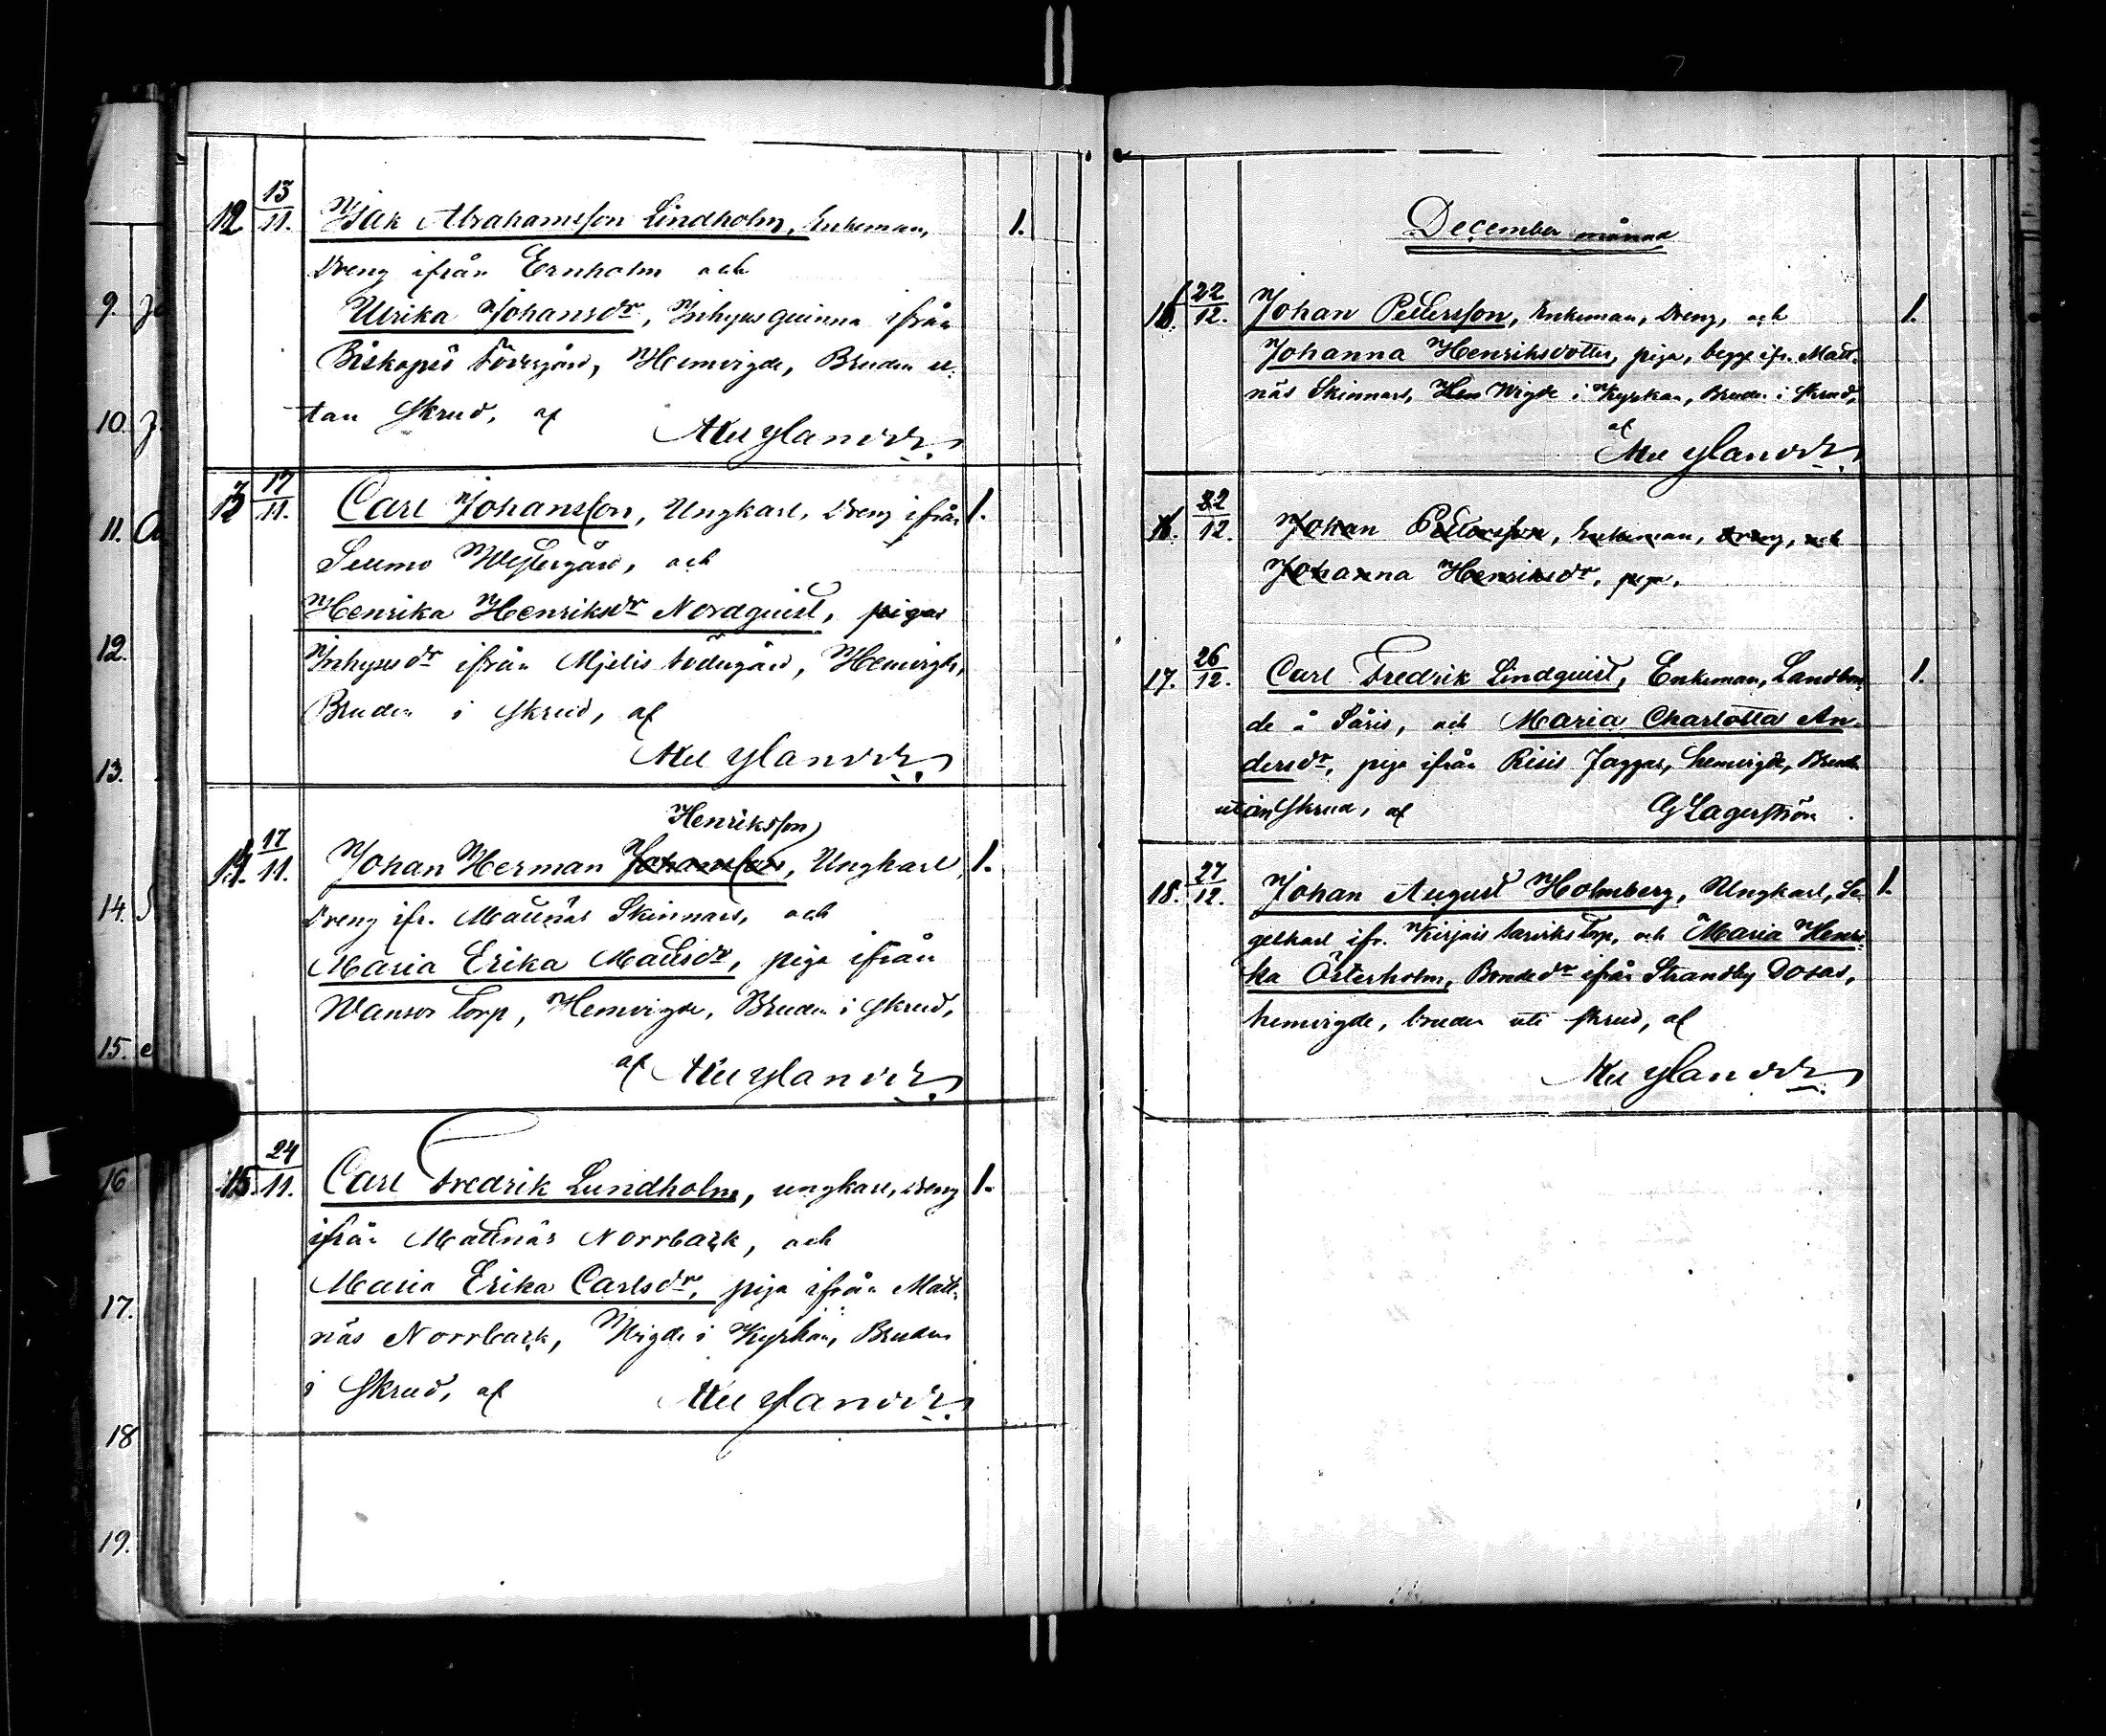 12 13/11. Isak Abrahamsson Lindholm, Enkeman, 1.
Dreng ifrån Ernholm och
Ulrika Johansdr, Inhysesquinna ifrån
Biskopsö Södergård, Hemvigde, Bruden u-
tan Skrud, af Ax Ylander
13 17/11. Carl Johansson, Ungkarl, Dreng ifrån 1.
Sellmo Westergård, och
Henrika Henriksdr Nordquist, piga
Inhysesdr ifrån Mjelis Södergård, Hemvigde,
Bruden i Skrud, af
Ax Ylander
Henriksson
14. 17/11. Johan Herman Johansson, Ungkarl, 1.
Dreng ifr. Mattnäs Skinnars, och
Maria Erika Mattsdr, piga ifrån
Wansor Torp, Hemvigde, Bruden i Skrud,
af Ax Ylander
15. 24/11. Carl Fredrik Lundholm, ungkarl, Dreng 1.
ifrån Mattnäs Norrback, och
Maria Erika Carlsdr, piga ifrån Matt-
näs Norrback, Wigde i Kyrkan, Bruden
i Skrud, af Ax Ylander
9.
10.
11.
12.
13.
14.
15.
16
17.
18
19.
December månad
16. 22/12. Johan Pettersson, Enkeman, Dreng, och 1.
Johanna Henriksdotter, piga, begge ifr. Matt-
näs Skinnars, Hem Wigde i Kyrkan, Bruden i Skrud,
af
Ax Ylander
16. 22/12. Johan Pettersson, Enkeman, dreng, och
Johanna Henriksdr, piga.
17. 26/12. Carl Fredrik Lindquist, Enkeman, Landbon- 1.
de å Säris, och Maria Charlotta An-
dersdr, piga ifrån Risis Jaggas, hemvigde, Bruden
utan Skrud, af G Lagerström.
18. 27/12. Johan August Holmberg, Ungkarl, Se- 1.
gelkarl ifr. Kirjais Torp, och Maria Henri-
ka Österholm, Bondedr ifrån Strandby
hemvigde, bruden uti skrud, af
Ax Ylander